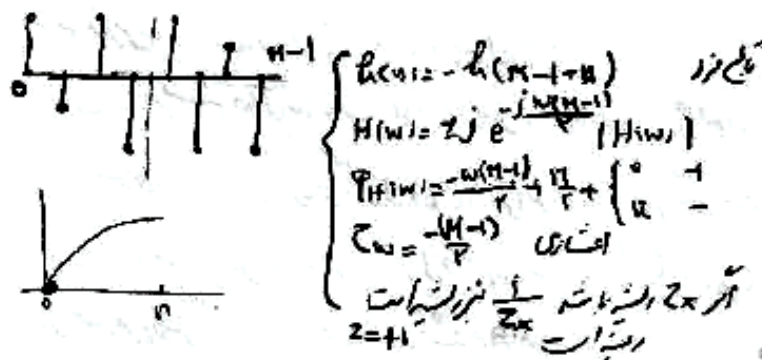 M-1
0
h(n) = -h(M-1-n) تابع فرد
H(w) = 2j e^{-j w(M-1)/2} |H(w)|
φ_H(w) = -w(M-1)/2 + π/2 + { 0 +
π -
τ_w = -(M-1)/2
0 π
اگر Zx ریشه باشد 1/Zx نیز ریشه است
z=+1 ریشه است